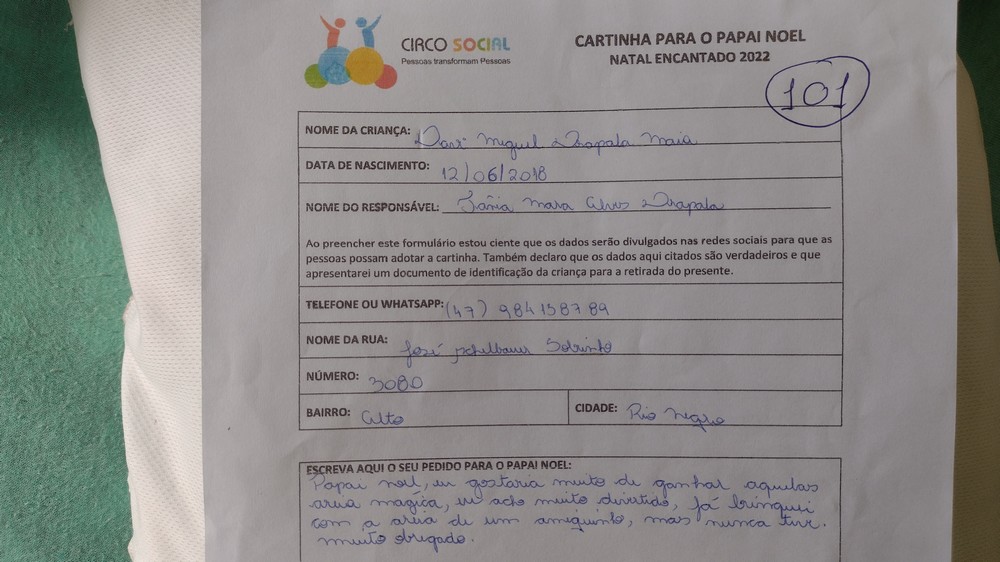 CIRCO SOCIAL
Pessoas transformam Pessoas
CARTINHA PARA O PAPAI NOEL
NATAL ENCANTADO 2022
101
NOME DA CRIANÇA: Davi Miguel Drapala Maia
DATA DE NASCIMENTO: 12/06/2018
NOME DO RESPONSÁVEL: Tânia Mara Alves Drapala
Ao preencher este formulário estou ciente que os dados serão divulgados nas redes sociais para que as
pessoas possam adotar a cartinha. Também declaro que os dados aqui citados são verdadeiros e que
apresentarei um documento de identificação da criança para a retirada do presente.
TELEFONE OU WHATSAPP: (47) 984158789
NOME DA RUA: José Sobrinho
NÚMERO: 3080
BAIRRO: Alto CIDADE: Rio Negro
ESCREVA AQUI O SEU PEDIDO PARA O PAPAI NOEL:
Papai noel, eu gostaria muito de ganhar aquelas
areia magica, eu acho muito divertido, já brinquei
com a areia de um amiguinho, mas nunca tive.
muito obrigado.